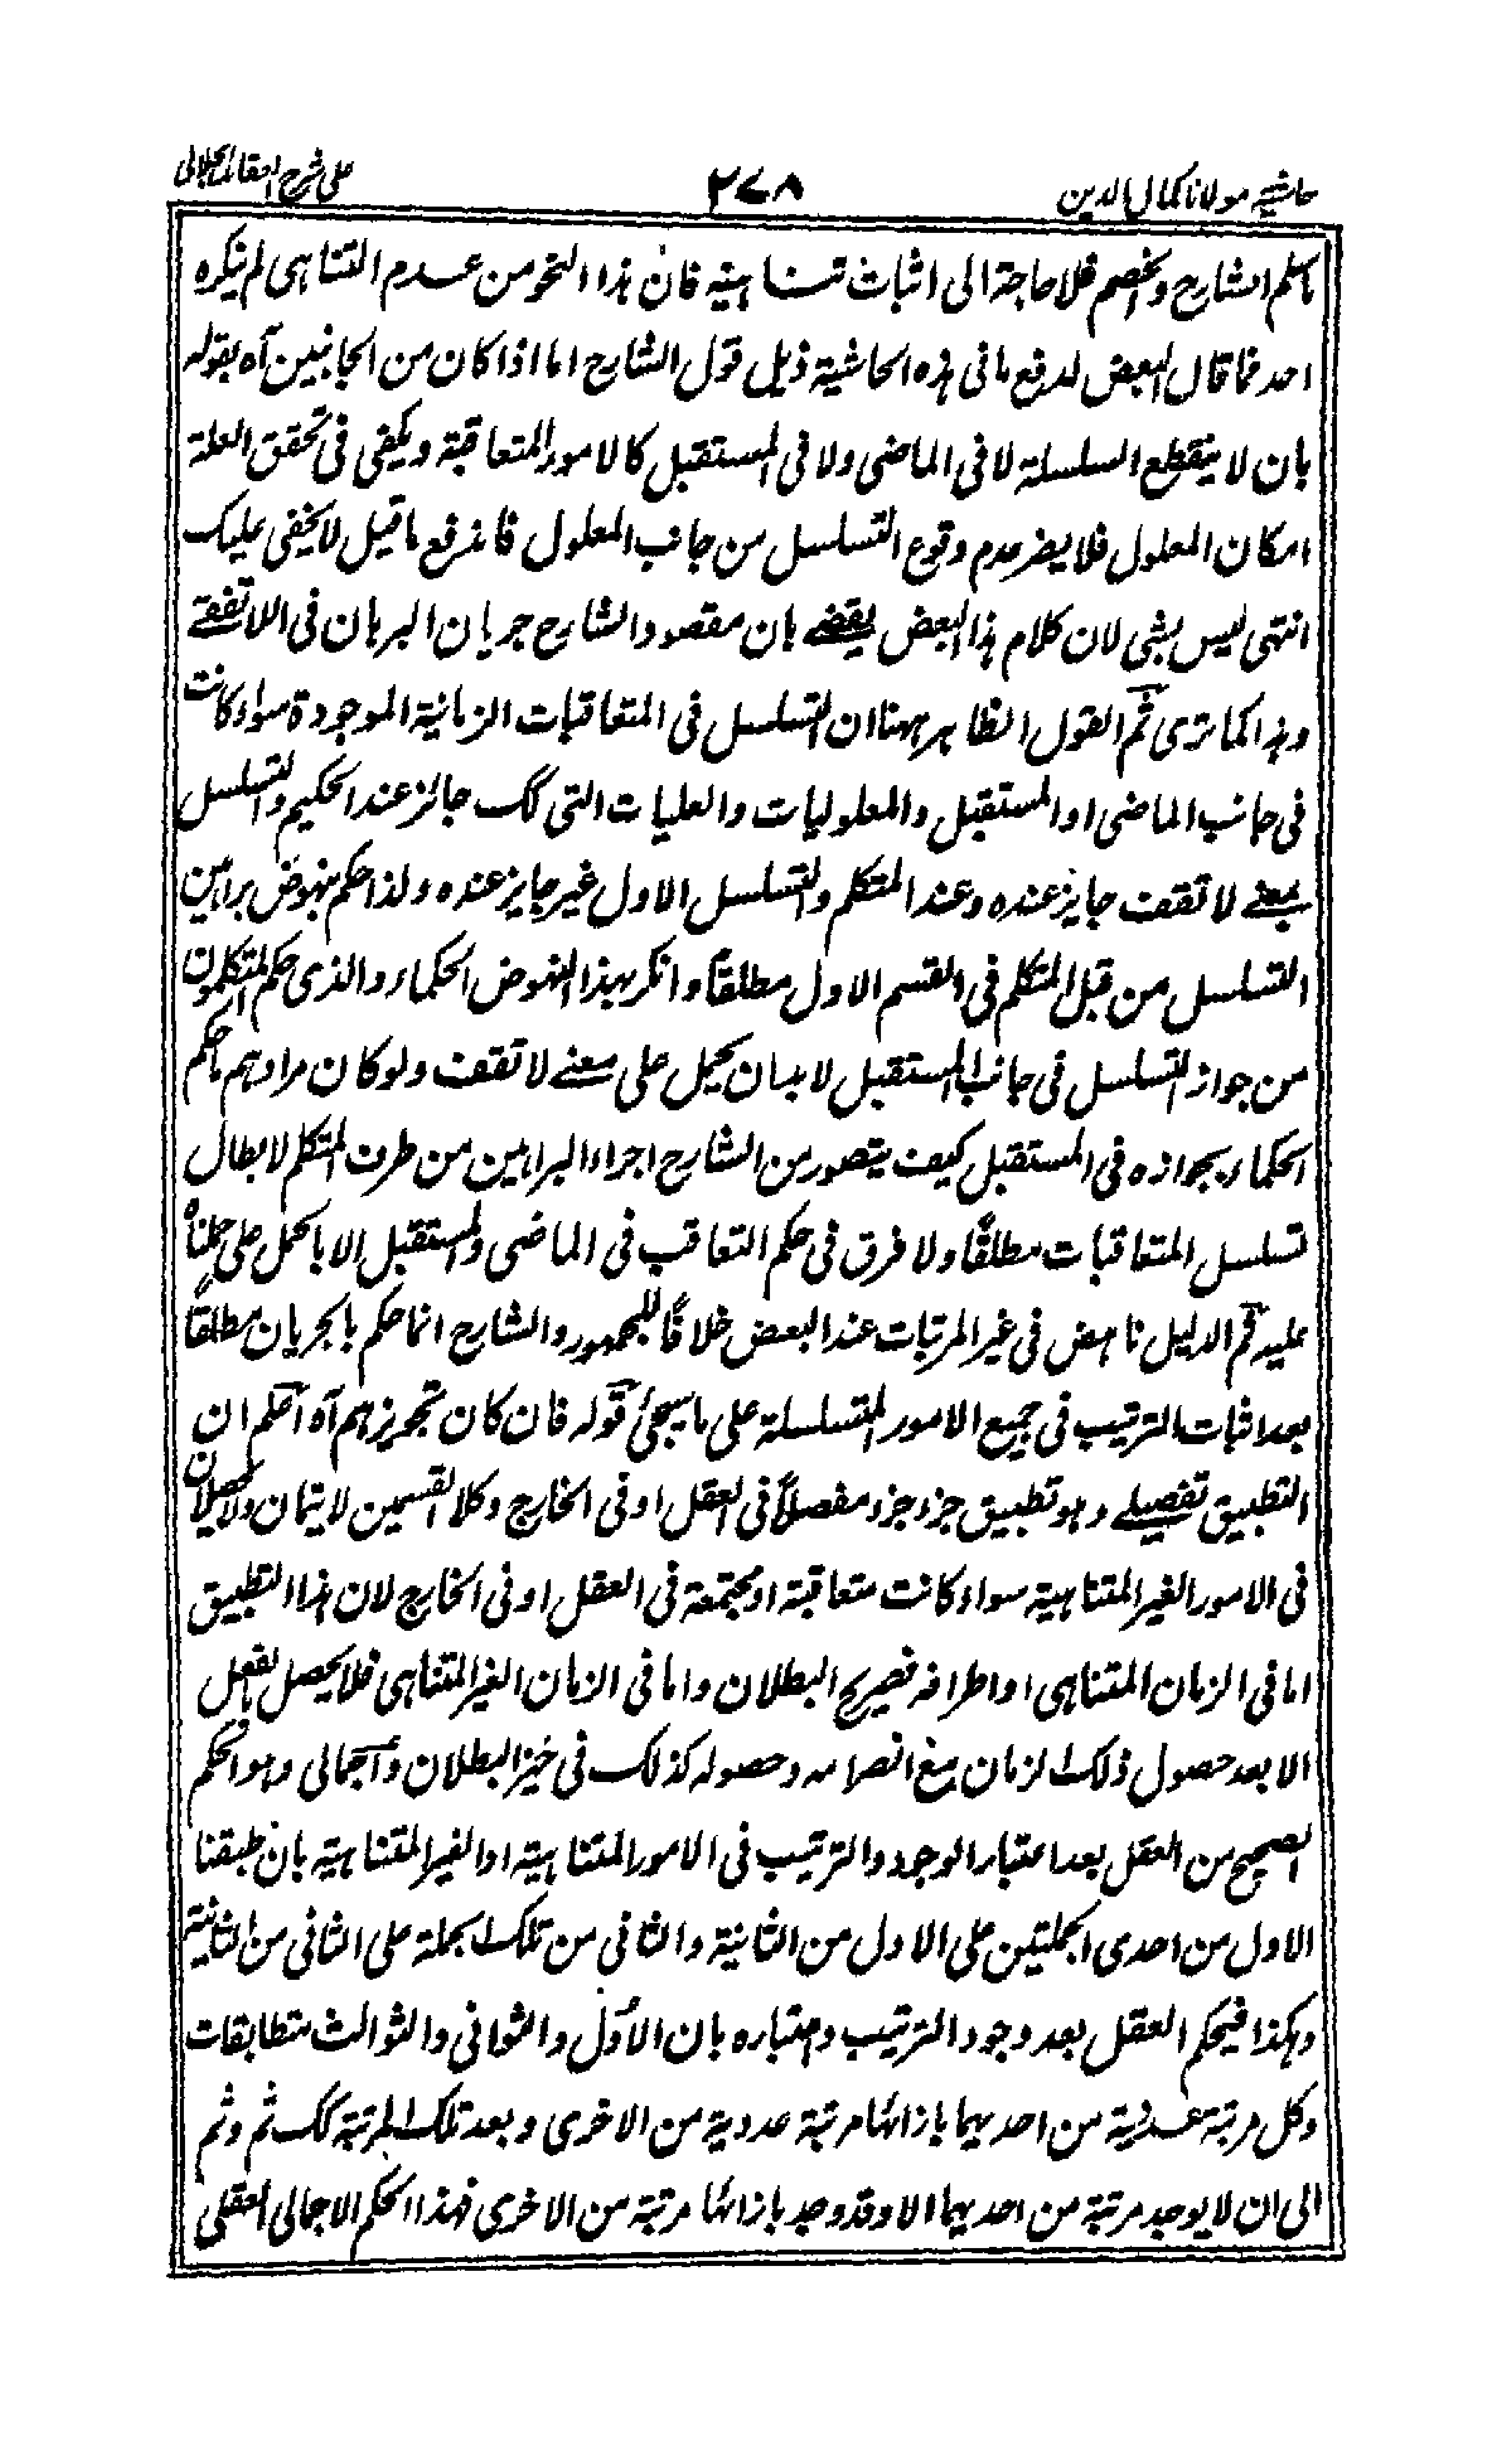 حاشیہ مولانا کمال الدین
۲۷۸
علی شرح العقائد الجلالی
ما سلم الشارح والخصم فلا حاجة الی اثبات تناہیتہ فان ہذا النحو من عدم التناہی لم ینکرہ
احد فما قال البعض لدفع ما فی ہذہ الحاشیة ذیل قول الشارح اما اذا کان من الجانبین آہ بقولہ
بان لا ینقطع السلسلة لا فی الماضی ولا فی المستقبل کالامور المتعاقبة ویکفی فی تحقق العلة
امکان المعلول فلا یضر عدم وقوع التسلسل من جانب المعلول فاندفع ما قیل لا یخفی علیک
انتہی لیس بشی لان کلام ہذا البعض یقضے بان مقصود الشارح جریان البرہان فی اللاتقفے
وہذا کما تری ثم القول الظاہر ہہنا ان التسلسل فی المتعاقبات الزمانیة الموجودة سواء کانت
فی جانب الماضی او المستقبل والمعلولیات والعلیات التی کک جائز عند الحکیم والتسلسل
بمعنے لا تقف جایز عندہ وعند المتکلم والتسلسل الاول غیر جایز عندہ ولذا حکم بنہوض براہین
التسلسل من قبل المتکلم فی القسم الاول مطلقاً وانکر بہذا النہوض الحکماء والذی حکم المتکلمون
من جواز التسلسل فی جانب المستقبل لا بد ان یحمل علی معنے لا تقف ولو کان مرادہم ما حکم
الحکماء بجوازہ فی المستقبل کیف یتصور من الشارح اجراء البراہین من طرف المتکلم لابطال
تسلسل المتعاقبات مطلقًا ولا فرق فی حکم التعاقب فی الماضی والمستقبل الا بالحمل علی ما حملناہ
علیہ ثم الدلیل ناہض فی غیر المرتبات عند البعض خلافًا للجمہور والشارح انما حکم بالجریان مطلقًا
بعد اثبات الترتیب فی جمیع الامور المتسلسلة علی ما سیجئ قولہ فان کان تجویزہم آہ اعلم ان
التطبیق تفصیلے وہو تطبیق جزء جزء مفصلاً فی العقل او فی الخارج وکلا القسمین لا یتمان ولا یحصلان
فی الامور الغیر المتناہیة سواء کانت متعاقبة او مجتمعة فی العقل او فی الخارج لان ہذا التطبیق
اما فی الزمان المتناہی او اطرافہ فصریح البطلان واما فی الزمان الغیر المتناہی فلا یحصل بالفعل
الا بعد حصول ذلک الزمان مع انصرامہ وحصولہ کذلک فی خیز البطلان واجمالی وہو الحکم
الصحیح من العقل بعد اعتبار الوجود والترتیب فی الامور المتناہیة او الغیر المتناہیة بان طبقنا
الاول من احدی الجملتین علی الاول من الثانیة والثانی من تلک الجملة علی الثانی من الثانیة
وہکذا فیحکم العقل بعد وجود الترتیب واعتبارہ بان الاُوَل والثوانی والثوالث متطابقات
وکل مرتبة عددیة من احدیہما بازائہا مرتبة عددیة من الاخری وبعد تلک المرتبة کک ثم وثم
الی ان لا یوجد مرتبة من احدیہما الا وقد وجد بازائہا مرتبة من الاخری فہذا الحکم الاجمالی العقلی